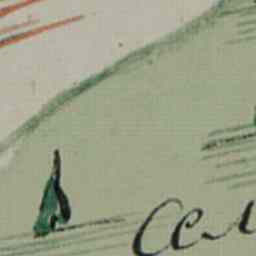 Сел